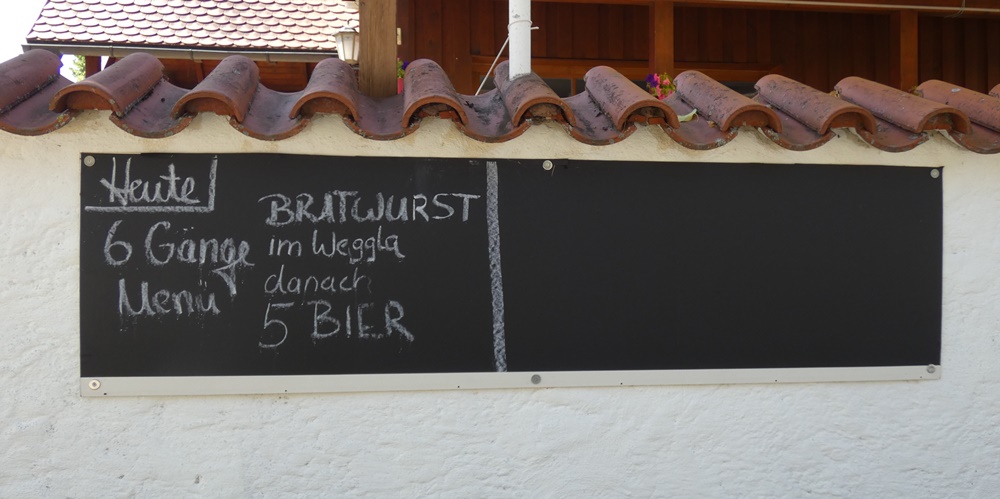 Heute
6 Gänge
Menü
BRATWURST
im Weggla
danach
5 BIER